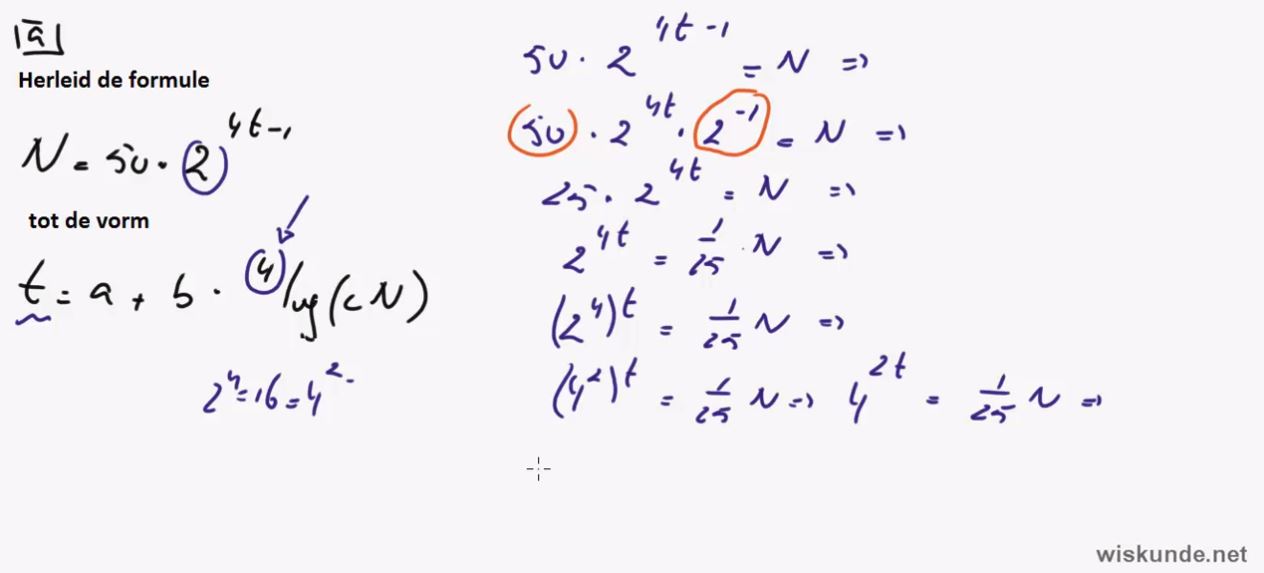 a
Herleid de formule
N = 50 · 2^(4t-1)
tot de vorm
t = a + b · ⁴log(cN)
2⁴ = 16 = 4².
50 · 2^(4t-1) = N ⇒
50 · 2^(4t) · 2^(-1) = N ⇒
25 · 2^(4t) = N ⇒
2^(4t) = 1/25 · N ⇒
(2⁴)^t = 1/25 N ⇒
(4²)^t = 1/25 N ⇒ 4^(2t) = 1/25 N ⇒
wiskunde.net